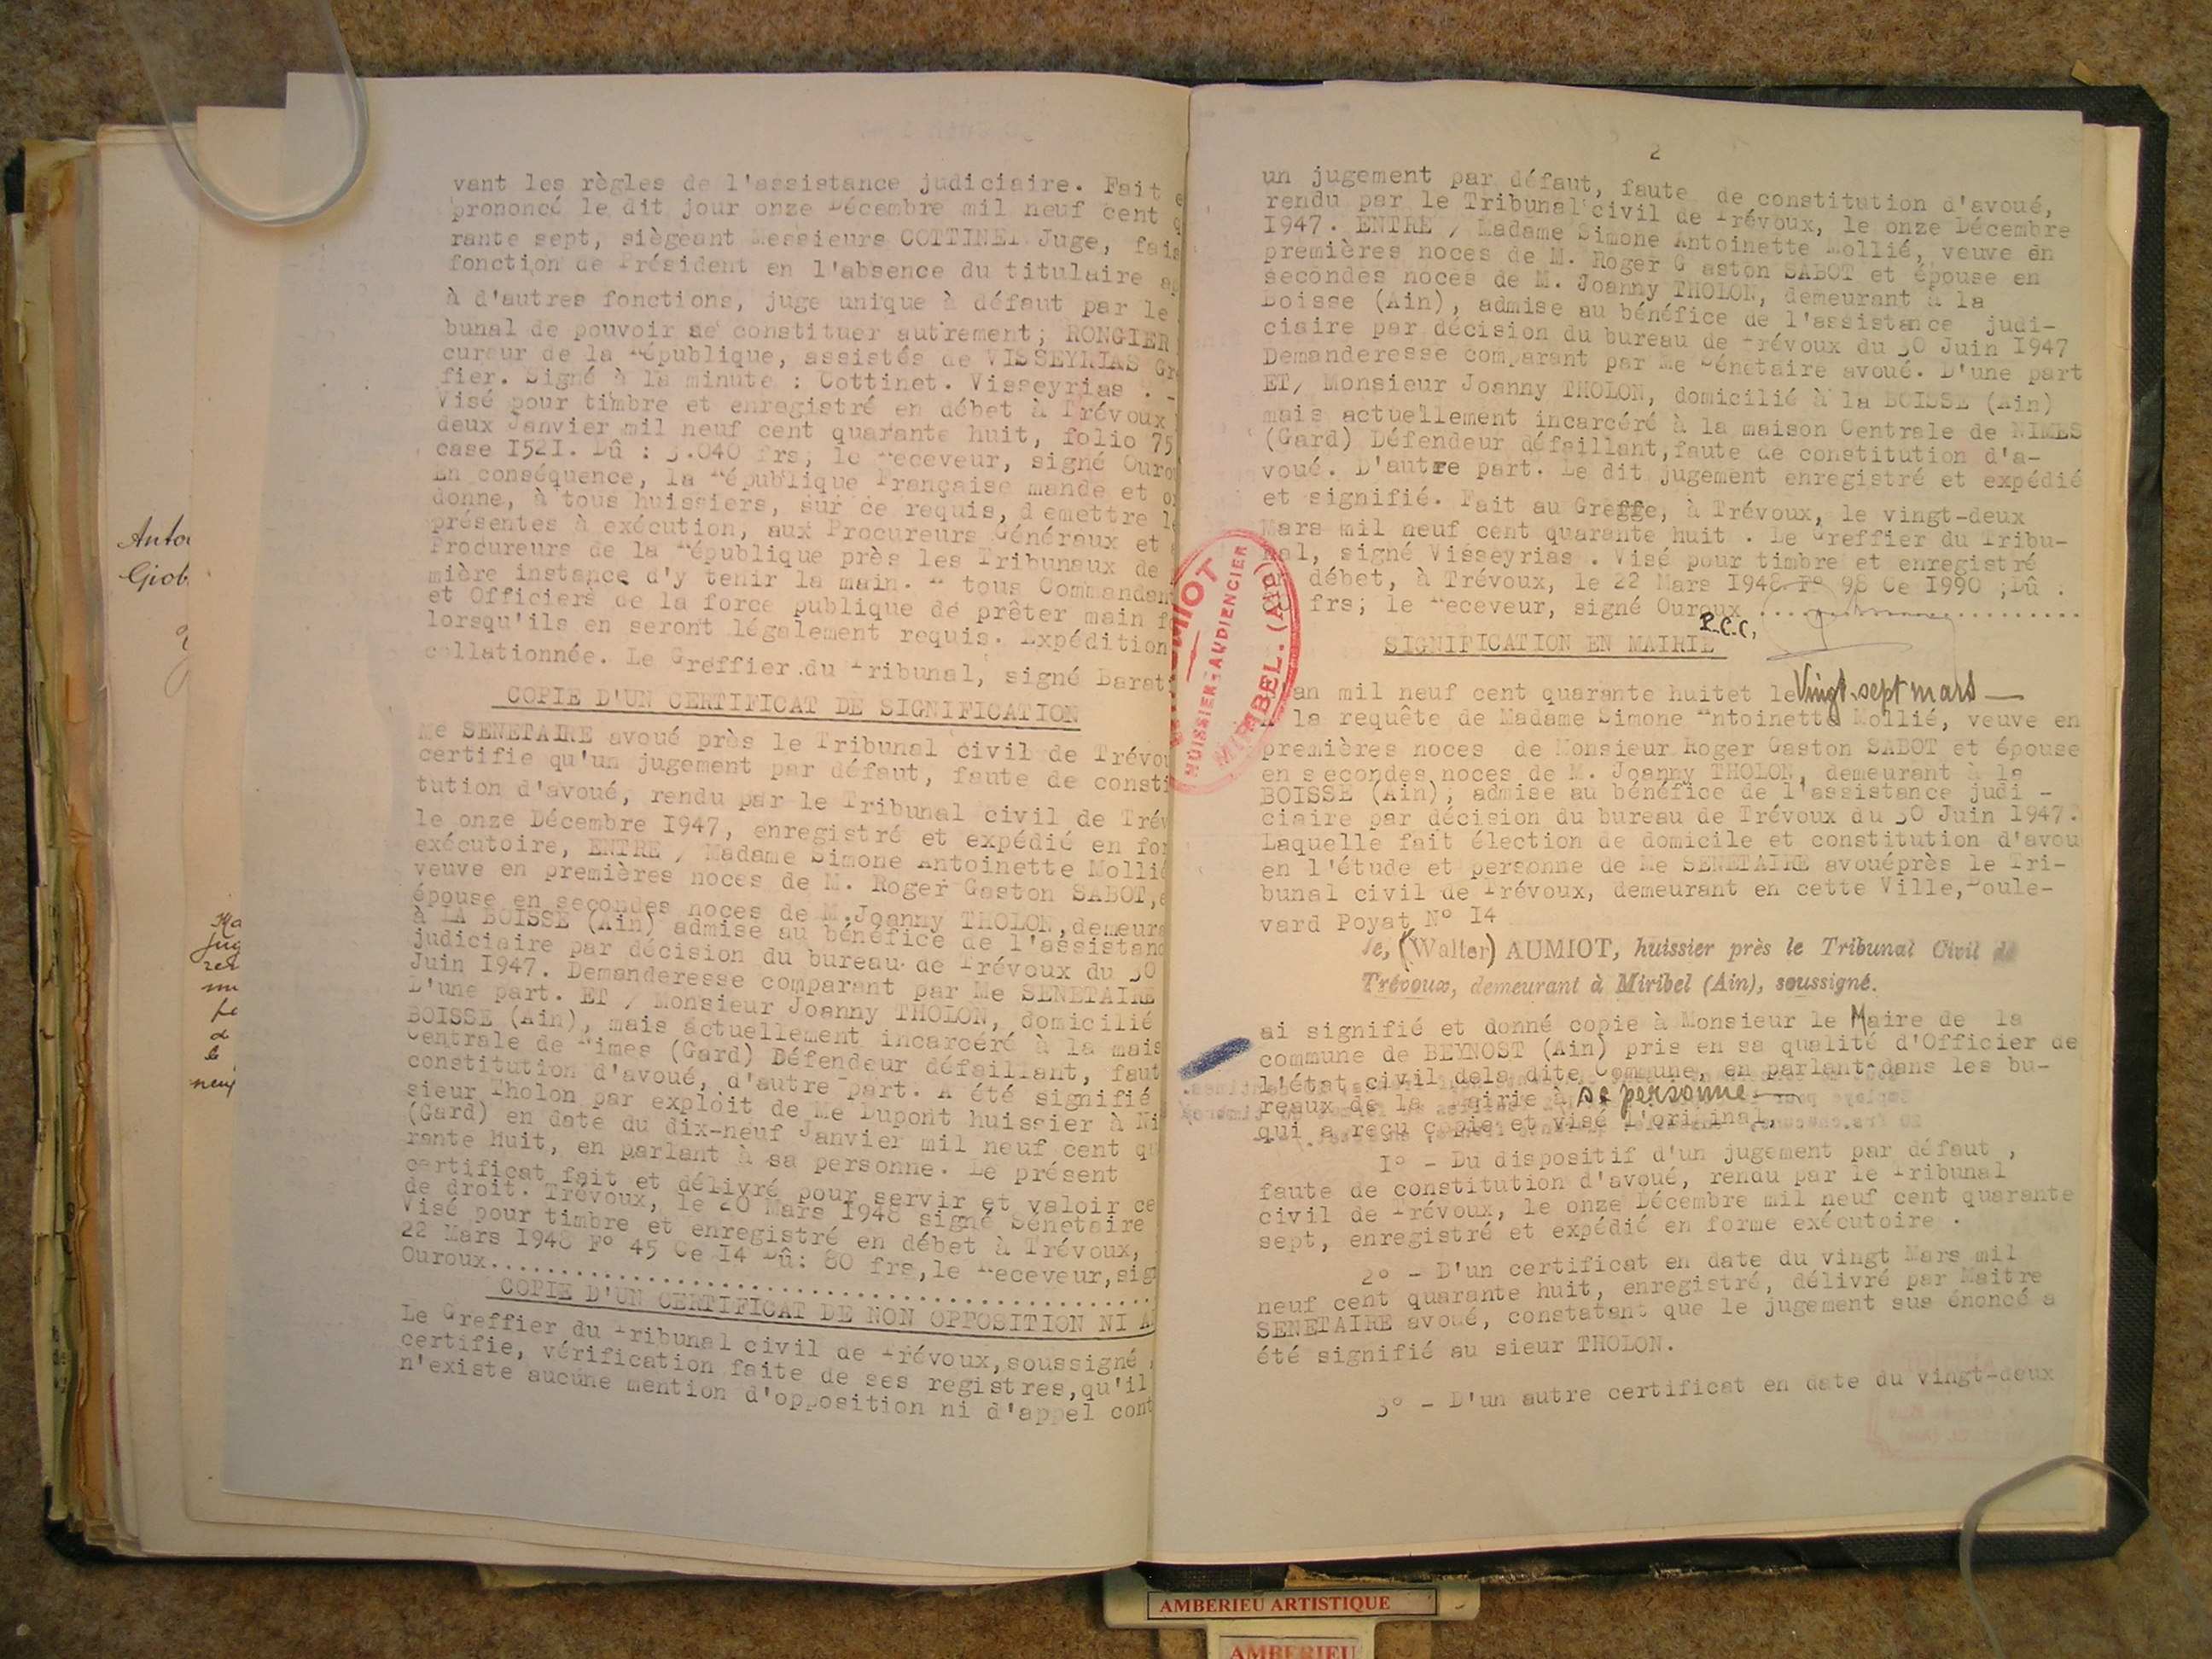 vant les règles de l'assistance judiciaire. Fait e
prononcé le dit jour onze Décembre mil neuf cent q
rante sept, siègeant Messieurs COTTINET Juge, fais
fonction de Président en l'absence du titulaire ap
à d'autres fonctions, juge unique à défaut par le
bunal de pouvoir se constituer autrement; RONGIER
cureur de la République, assistés de VISSEYRIAS Gre
fier. Signé à la minute : Cottinet. Visseyrias . -
Visé pour timbre et enregistré en débet à Trévoux
deux Janvier mil neuf cent quarante huit, folio 75
case I52I. Dû : 3.040 frs; le Receveur, signé Ourou
En conséquence, la République Française mande et o
donne, à tous huissiers, sur ce requis, d emettre le
présentes à exécution, aux Procureurs Généraux et
Procureurs de la République près les Tribunaux de
mière instance d'y tenir la main. A tous Commandan
et Officiers de la force publique de prêter main f
lorsqu'ils en seront légalement requis. Expédition
collationnée. Le Greffier du Tribunal, signé Barat
COPIE D'UN CERTIFICAT DE SIGNIFICATION
Me SENETAIRE avoué près le Tribunal civil de Trévou
certifie qu'un jugement par défaut, faute de consti
tution d'avoué, rendu par le Tribunal civil de Trév
le onze Décembre I947, enregistré et expédié en for
exécutoire, ENTRE / Madame Simone Antoinette Mollié
veuve en premières noces de M. Roger Gaston SABOT,é
épouse en secondes noces de M.Joanny THOLON,demeura
à LA BOISSE (Ain) admise au bénéfice de l'assistanc
judiciaire par décision du bureau de Trévoux du 30
Juin I947. Demanderesse comparant par Me SENETAIRE
D'une part. ET / Monsieur Joanny THOLON, domicilié
BOISSE (Ain), mais actuellement incarcéré à la mais
Centrale de Nimes (Gard) Défendeur défaillant, faut
constitution d'avoué, d'autre part. A été signifié
sieur Tholon par exploit de Me Dupont huissier à Ni
(Gard) en date du dix-neuf Janvier mil neuf cent qu
rante Huit, en parlant à sa personne. Le présent
certificat fait et délivré pour servir et valoir ce
de droit. Trévoux, le 20 Mars I948 signé Sénetaire
Visé pour timbre et enregistré en débet à Trévoux,
22 Mars I948 F° 45 Ce I4 Dû: 80 frs,le Receveur,sig
Ouroux..............................
COPIE D'UN CERTIFICAT DE NON OPPOSITION NI A
Le Greffier du Tribunal civil de Trévoux,soussigné ,
certifie, vérification faite de ses registres,qu'il
n'existe aucune mention d'opposition ni d'appel cont
Antoi
Giob
Ha
jug
neuf
2
un jugement par défaut, faute de constitution d'avoué,
rendu par le Tribunal civil de Trévoux, le onze Décembre
I947. ENTRE / Madame Simone Antoinette Mollié, veuve en
premières noces de M. Roger G aston SABOT et épouse en
secondes noces de M. Joanny THOLON, demeurant à la
Boisse (Ain), admise au bénéfice de l'assistance judi-
ciaire par décision du bureau de Trévoux du 30 Juin I947
Demanderesse comparant par Me Sénetaire avoué. D'une part
ET/ Monsieur Joanny THOLON, domicilié à la BOISSE (Ain)
mais actuellement incarcéré à la maison Centrale de NIMES
(Gard) Défendeur défaillant,faute de constitution d'a-
voué. D'autre part. Le dit jugement enregistré et expédié
et signifié. Fait au Greffe, à Trévoux, le vingt-deux
Mars mil neuf cent quarante huit . Le Greffier du Tribu-
nal, signé Visseyrias . Visé pour timbre et enregistré
débet, à Trévoux, le 22 Mars I948 F° 98 Ce I990 ;Dû .
frs; le Receveur, signé Ouroux ..............................
P.C.C.
SIGNIFICATION EN MAIRIE
an mil neuf cent quarante huitet le Vingt-sept mars
la requête de Madame Simone Antoinette Mollié, veuve en
premières noces de Monsieur Roger Gaston SABOT et épouse
en s econdes noces de M. Joanny THOLON, demeurant à la
BOISSE (Ain), admise au bénéfice de l'assistance judi -
ciaire par décision du bureau de Trévoux du 30 Juin I947.
Laquelle fait élection de domicile et constitution d'avou
en l'étude et personne de Me SENETAIRE avouéprès le Tri-
bunal civil de Trévoux, demeurant en cette Ville,Boule-
vard Poyat N° I4
Je, (Walter) AUMIOT, huissier près le Tribunal Civil de
Trévoux, demeurant à Miribel (Ain), soussigné.
ai signifié et donné copie à Monsieur le Maire de la
commune de BEYNOST (Ain) pris en sa qualité d'Officier de
l'état civil dela dite Commune, en parlant dans les bu-
reaux de la Mairie à sa personne
qui a reçu copie et visé l'original,
I° - Du dispositif d'un jugement par défaut ,
faute de constitution d'avoué, rendu par le Tribunal
civil de Trévoux, le onze Décembre mil neuf cent quarante
sept, enregistré et expédié en forme exécutoire .
2° - D'un certificat en date du vingt Mars mil
neuf cent quarante huit, enregistré, délivré par Maitre
SENETAIRE avoué, constatant que le jugement sus énoncé a
été signifié au sieur THOLON.
3° - D'un autre certificat en date du vingt-deux
MIOT
HUISSIER-AUDIENCIER
MIRIBEL. (AIN)
AMBERIEU ARTISTIQUE
AMBERIEU